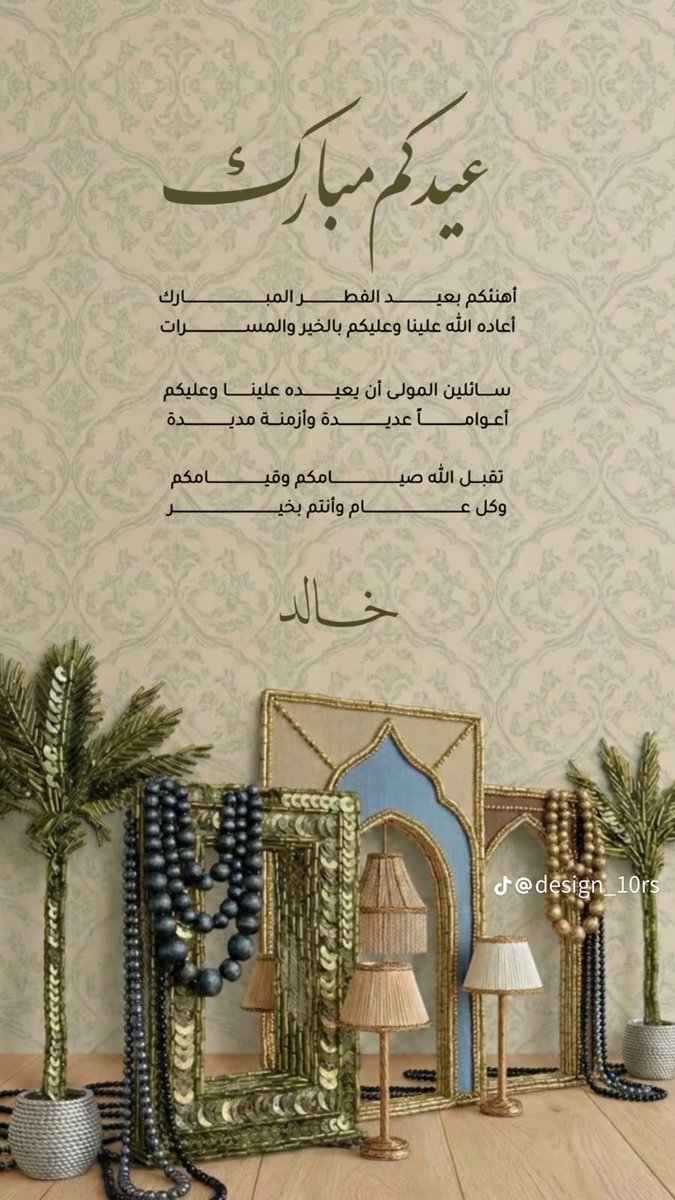 عيدكم مبارك
أهنئكم بعيــــد الفطــــر المبــــــارك
أعاده الله علينا وعليكم بالخير والمســــــرات
ســائلين المولى أن يعيــــده علينــــا وعليكم
أعوامــــــاً عديــــــدة وأزمنــة مديــــــدة
تقبــل الله صيــــــامكم وقيــــــامكم
وكل عــــــــام وأنتم بخيــــــــر
خالد
@design_10rs